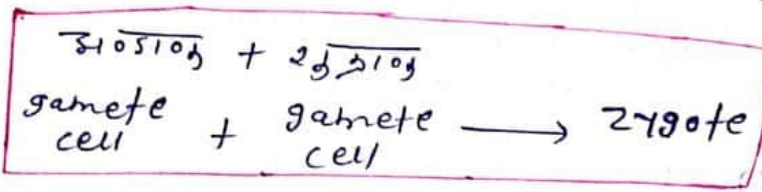 अण्डाणु + शुक्राणु
gamete cell + gamete cell → zygote